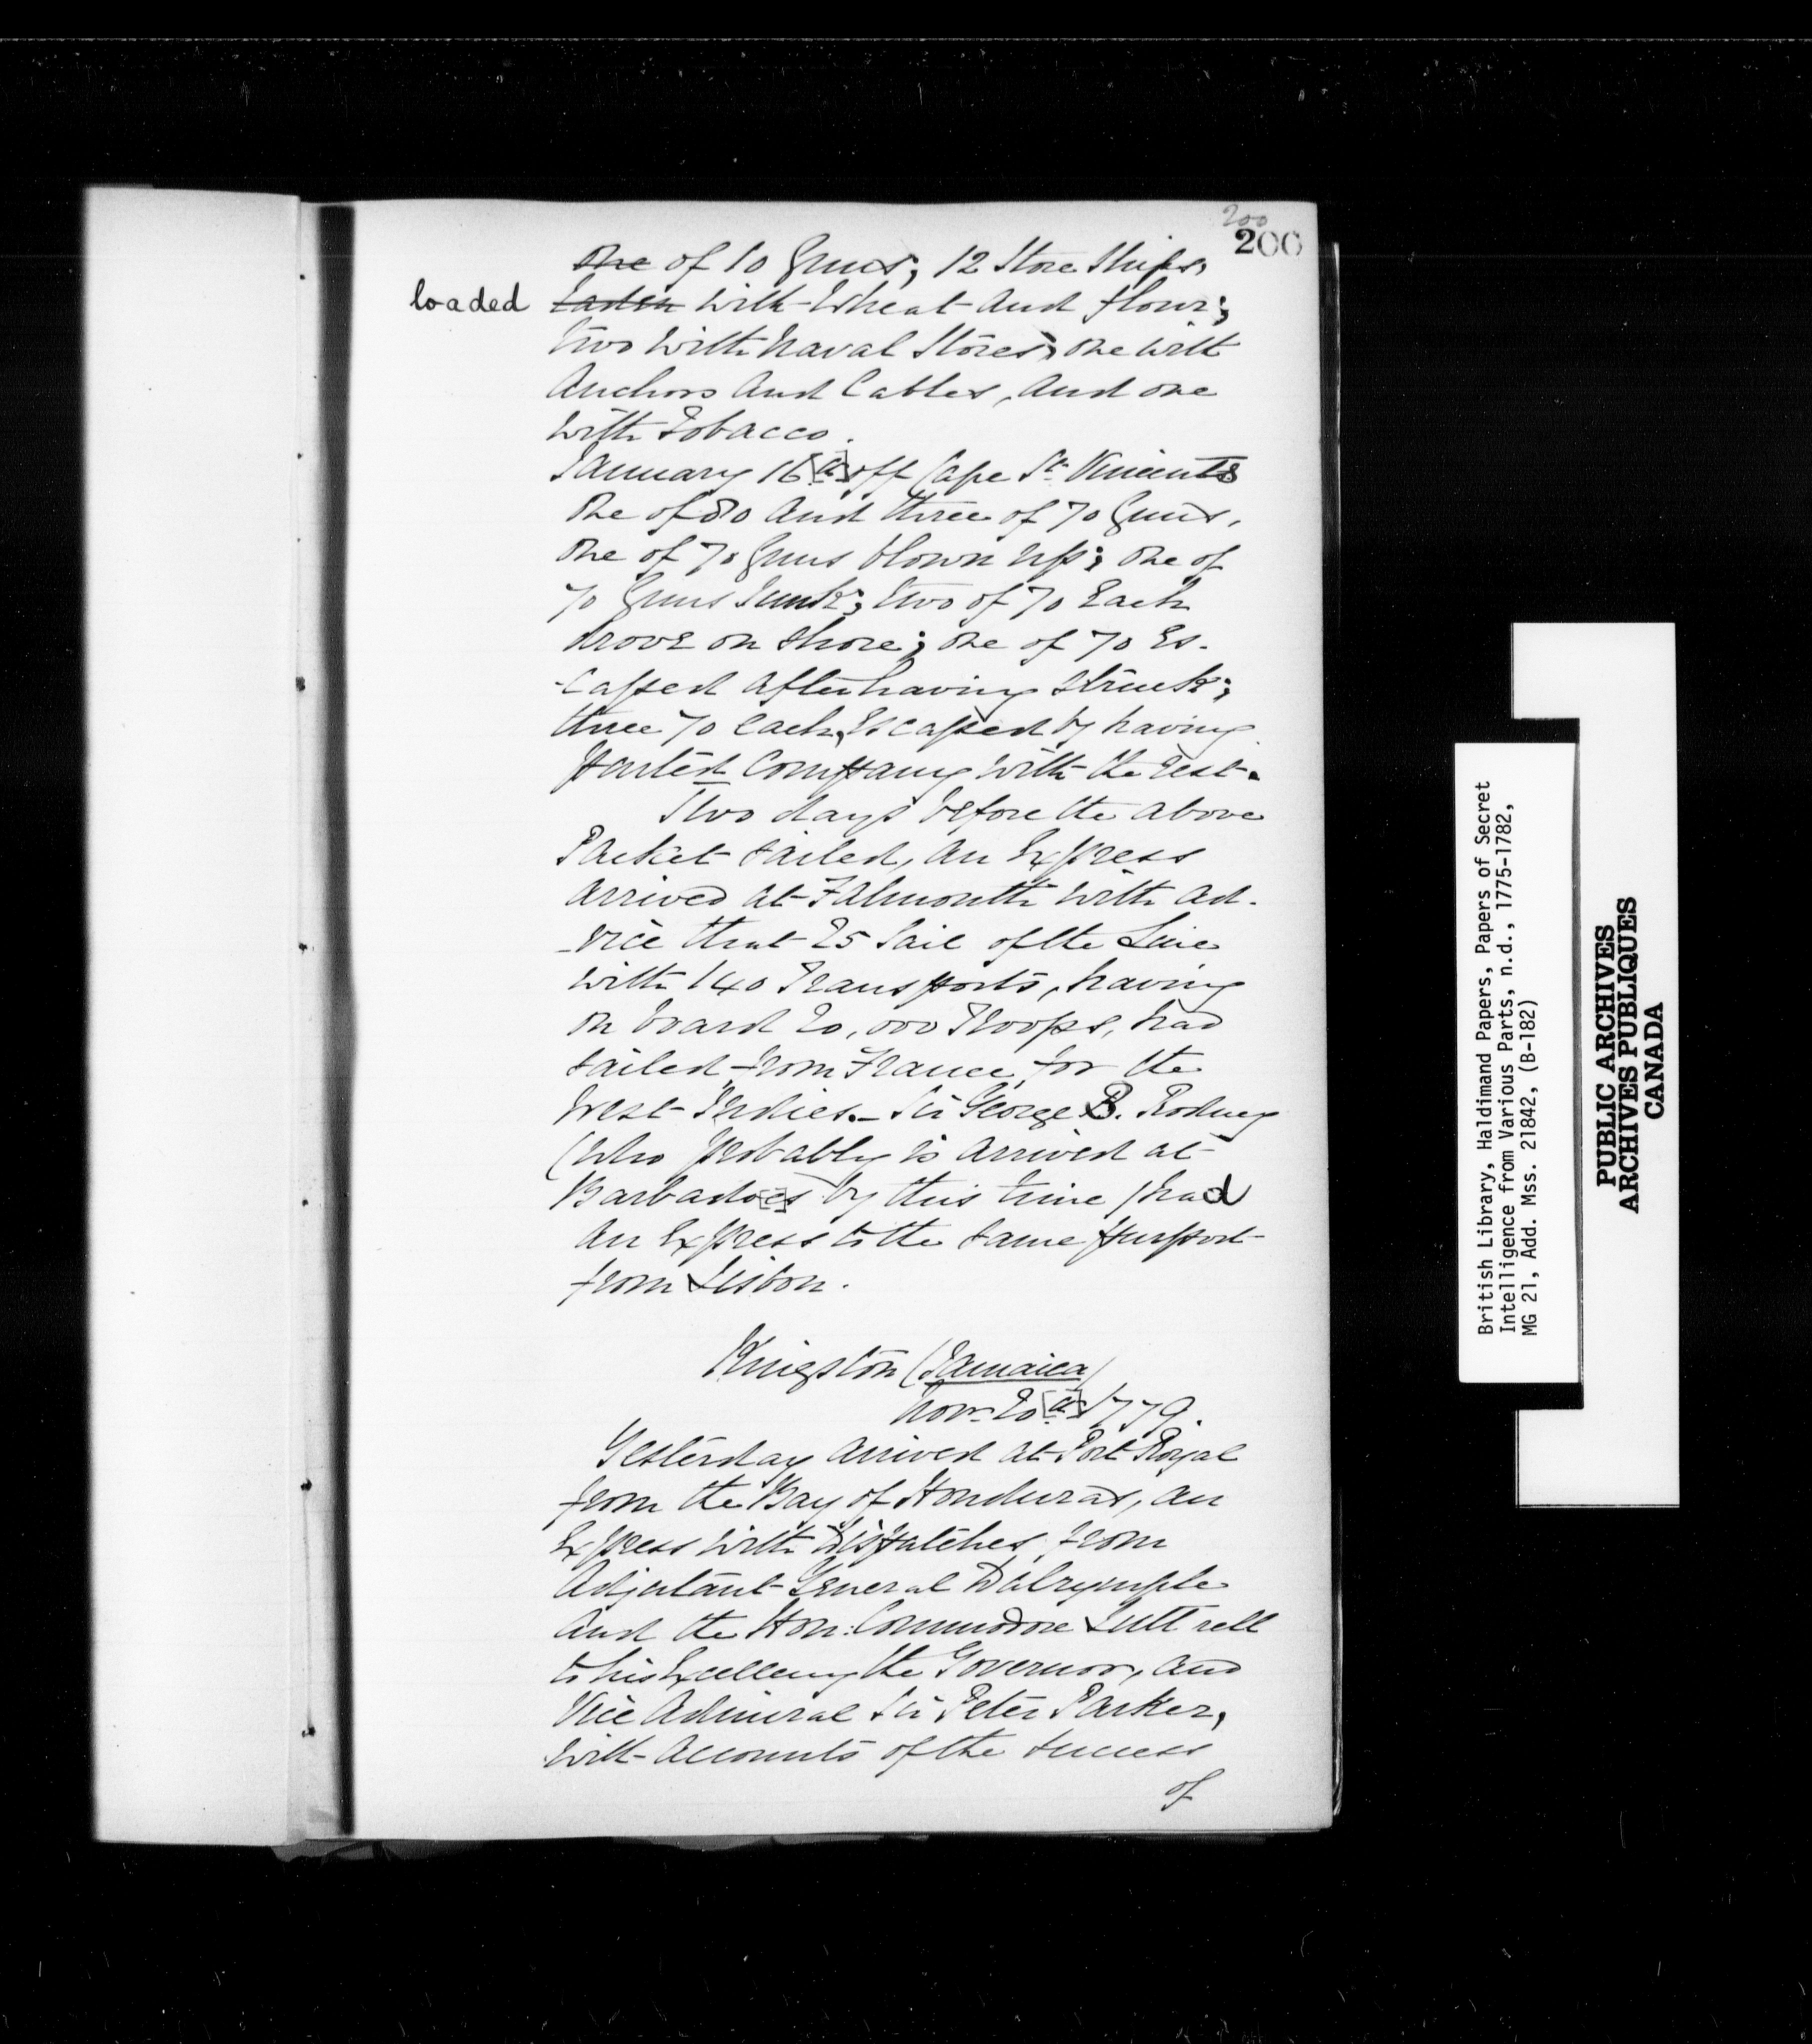 200
200
one of 10 Guns; 12 Store Ships,
loaded Laden with Wheat and flour;
two with Naval Stores, one with
Anchors and Cables, and one
with Tobacco.
January 16[th] off Cape St. Vincents
One of 80 and three of 70 Guns,
One of 70 Guns blown up; One of
70 Guns Sunk; two of 70 Each
drove on shore; one of 70 Es-
-caped after having struck;
three 70 each, Escaped by having
parted Company with the rest.
Two days before the above
Packet sailed, an Express
arrived at Falmouth with ad-
-vice that 25 Sail of the Line
with 140 Transports, having
on board 20,000 Troops, had
sailed from France for the
West Indies. - Sir George B. Rodney
(who probably is arrived at
Barbado[e]s by this time) had
an Express to the same purport
from Lisbon.
Kingston (Jamaica)
Novr. 20[th] 1779.
Yesterday arrived at Port Royal
from the Bay of Honduras, an
Express with Dispatches from
Adjutant General Dalrymple
and the Hon: Commodore Luttrell
to his Excellency the Governor, and
Vice Admiral Sir Peter Parker,
with Accounts of the success
of
British Library, Haldimand Papers, Papers of Secret
Intelligence from Various Parts, n.d., 1775-1782,
MG 21, Add. Mss. 21842, (B-182)
PUBLIC ARCHIVES
ARCHIVES PUBLIQUES
CANADA